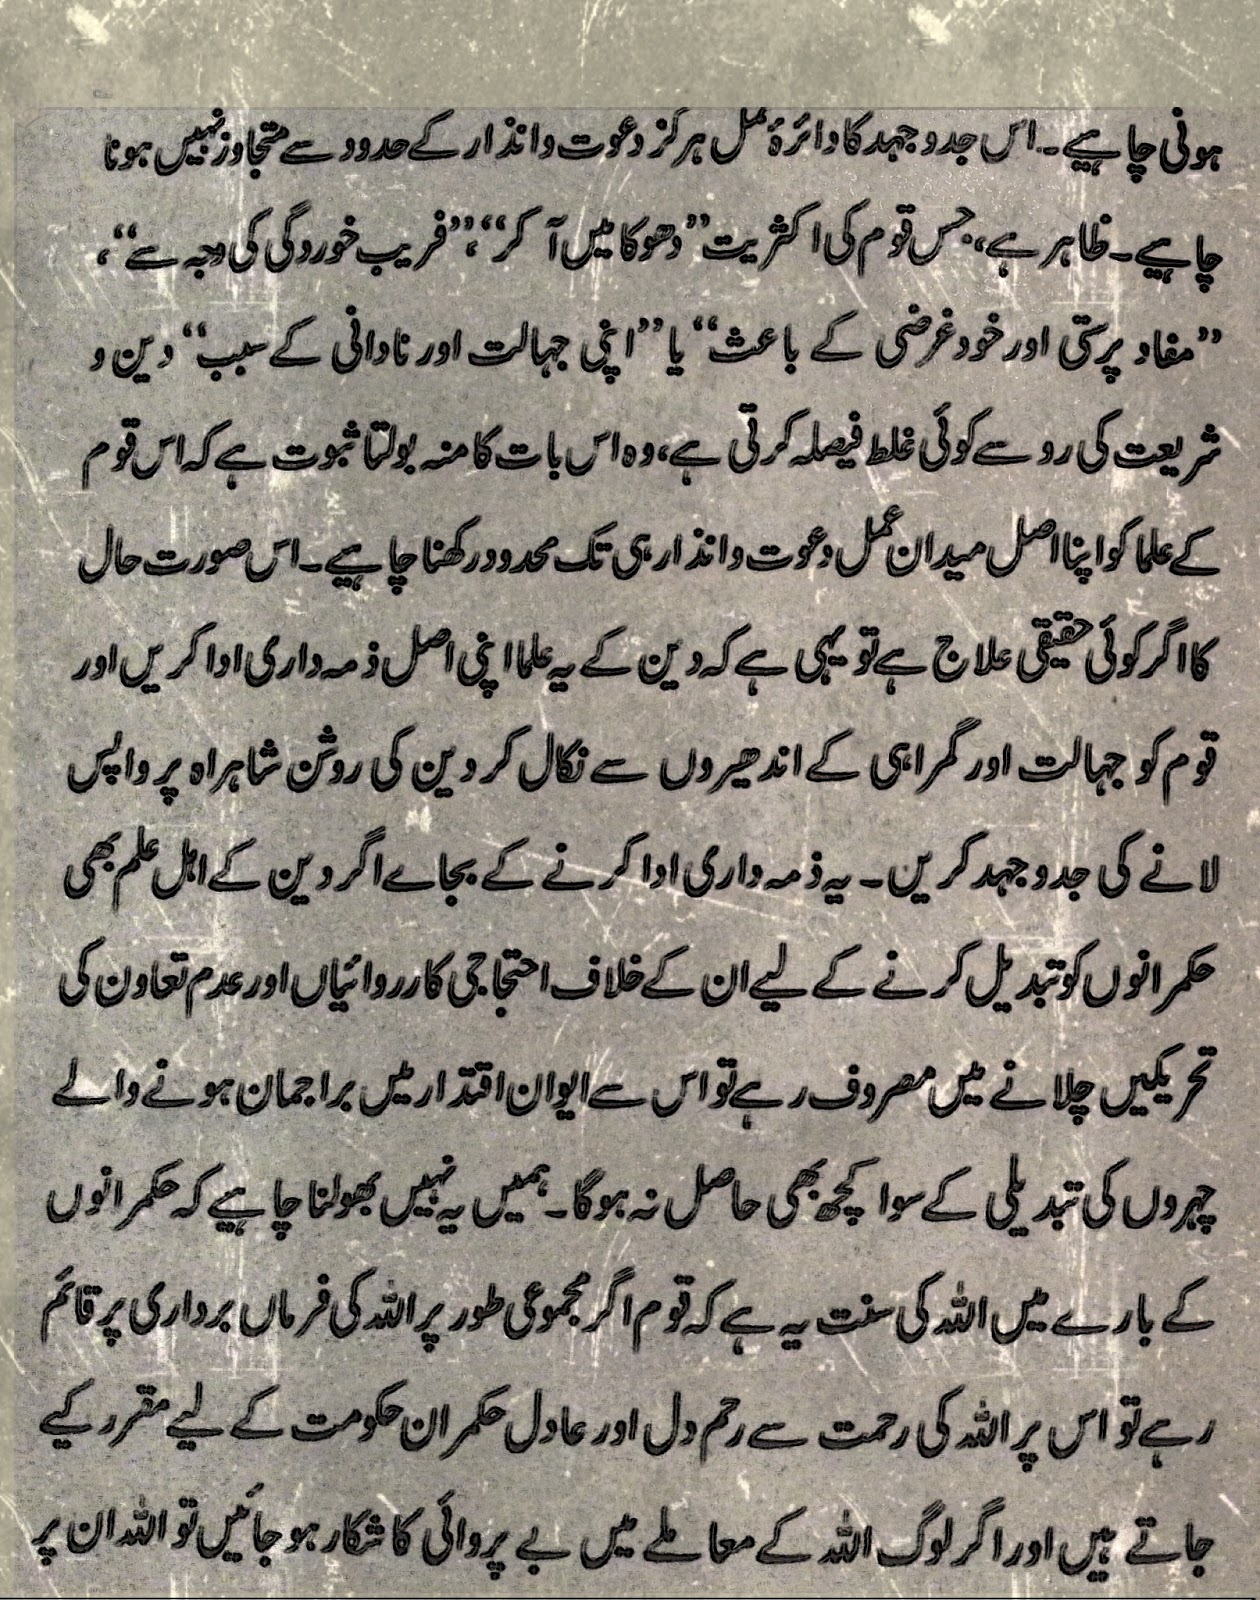 ہونی چاہیے۔ اس جدوجہد کا دائرۂ عمل ہرگز دعوت وانذار کے حدود سے متجاوز نہیں ہونا
چاہیے۔ ظاہر ہے، جس قوم کی اکثریت ”دھوکا میں آ کر“، ”فریب خوردگی کی وجہ سے“،
”مفاد پرستی اور خودغرضی کے باعث“ یا ”اپنی جہالت اور نادانی کے سبب“ دین و
شریعت کی رو سے کوئی غلط فیصلہ کرتی ہے، وہ اس بات کا منہ بولتا ثبوت ہے کہ اس قوم
کے علما کو اپنا اصل میدان عمل دعوت وانذار ہی تک محدود رکھنا چاہیے۔ اس صورت حال
کا اگر کوئی حقیقی علاج ہے تو یہی ہے کہ دین کے یہ علما اپنی اصل ذمہ داری ادا کریں اور
قوم کو جہالت اور گمراہی کے اندھیروں سے نکال کر دین کی روشن شاہراہ پر واپس
لانے کی جدوجہد کریں۔ یہ ذمہ داری ادا کرنے کے بجاے اگر دین کے اہل علم بھی
حکمرانوں کو تبدیل کرنے کے لیے ان کے خلاف احتجاجی کارروائیاں اور عدم تعاون کی
تحریکیں چلانے میں مصروف رہے تو اس سے ایوان اقتدار میں براجمان ہونے والے
چہروں کی تبدیلی کے سوا کچھ بھی حاصل نہ ہوگا۔ ہمیں یہ نہیں بھولنا چاہیے کہ حکمرانوں
کے بارے میں اللہ کی سنت یہ ہے کہ قوم اگر مجموعی طور پر اللہ کی فرماں برداری پر قائم
رہے تو اس پر اللہ کی رحمت سے رحم دل اور عادل حکمران حکومت کے لیے مقرر کیے
جاتے ہیں اور اگر لوگ اللہ کے معاملے میں بے پروائی کا شکار ہو جائیں تو اللہ ان پر